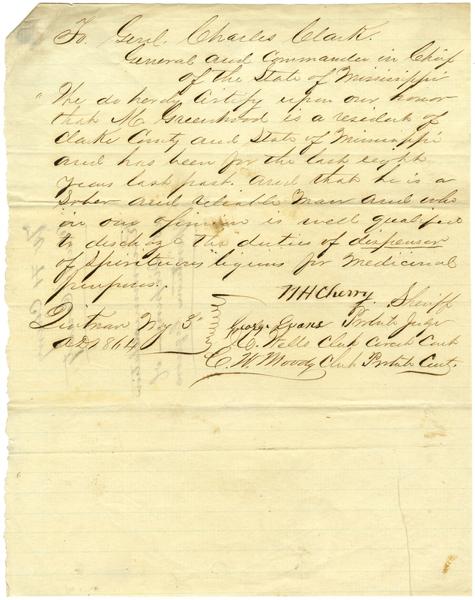 To. Genl. Charles Clark.
General and Commander in Chief
of the State of Mississippi
We do hereby Certify upon our honor
that M. Greenhood is a resident of
Clarke County and State of Mississippi
and has been for the last eight
years last past. and that he is a
sober and reliable man and who
in our opinion is well qualified
to discharge the duties of dispenser
of Spirituous liquors for Medicinal
purposes.
W H Cherry Sheriff
Quitman 3d George Evans Probate Judge
AD 1864 Wells Clk Circuit Court
C. W. Moody Clerk Probate Court.